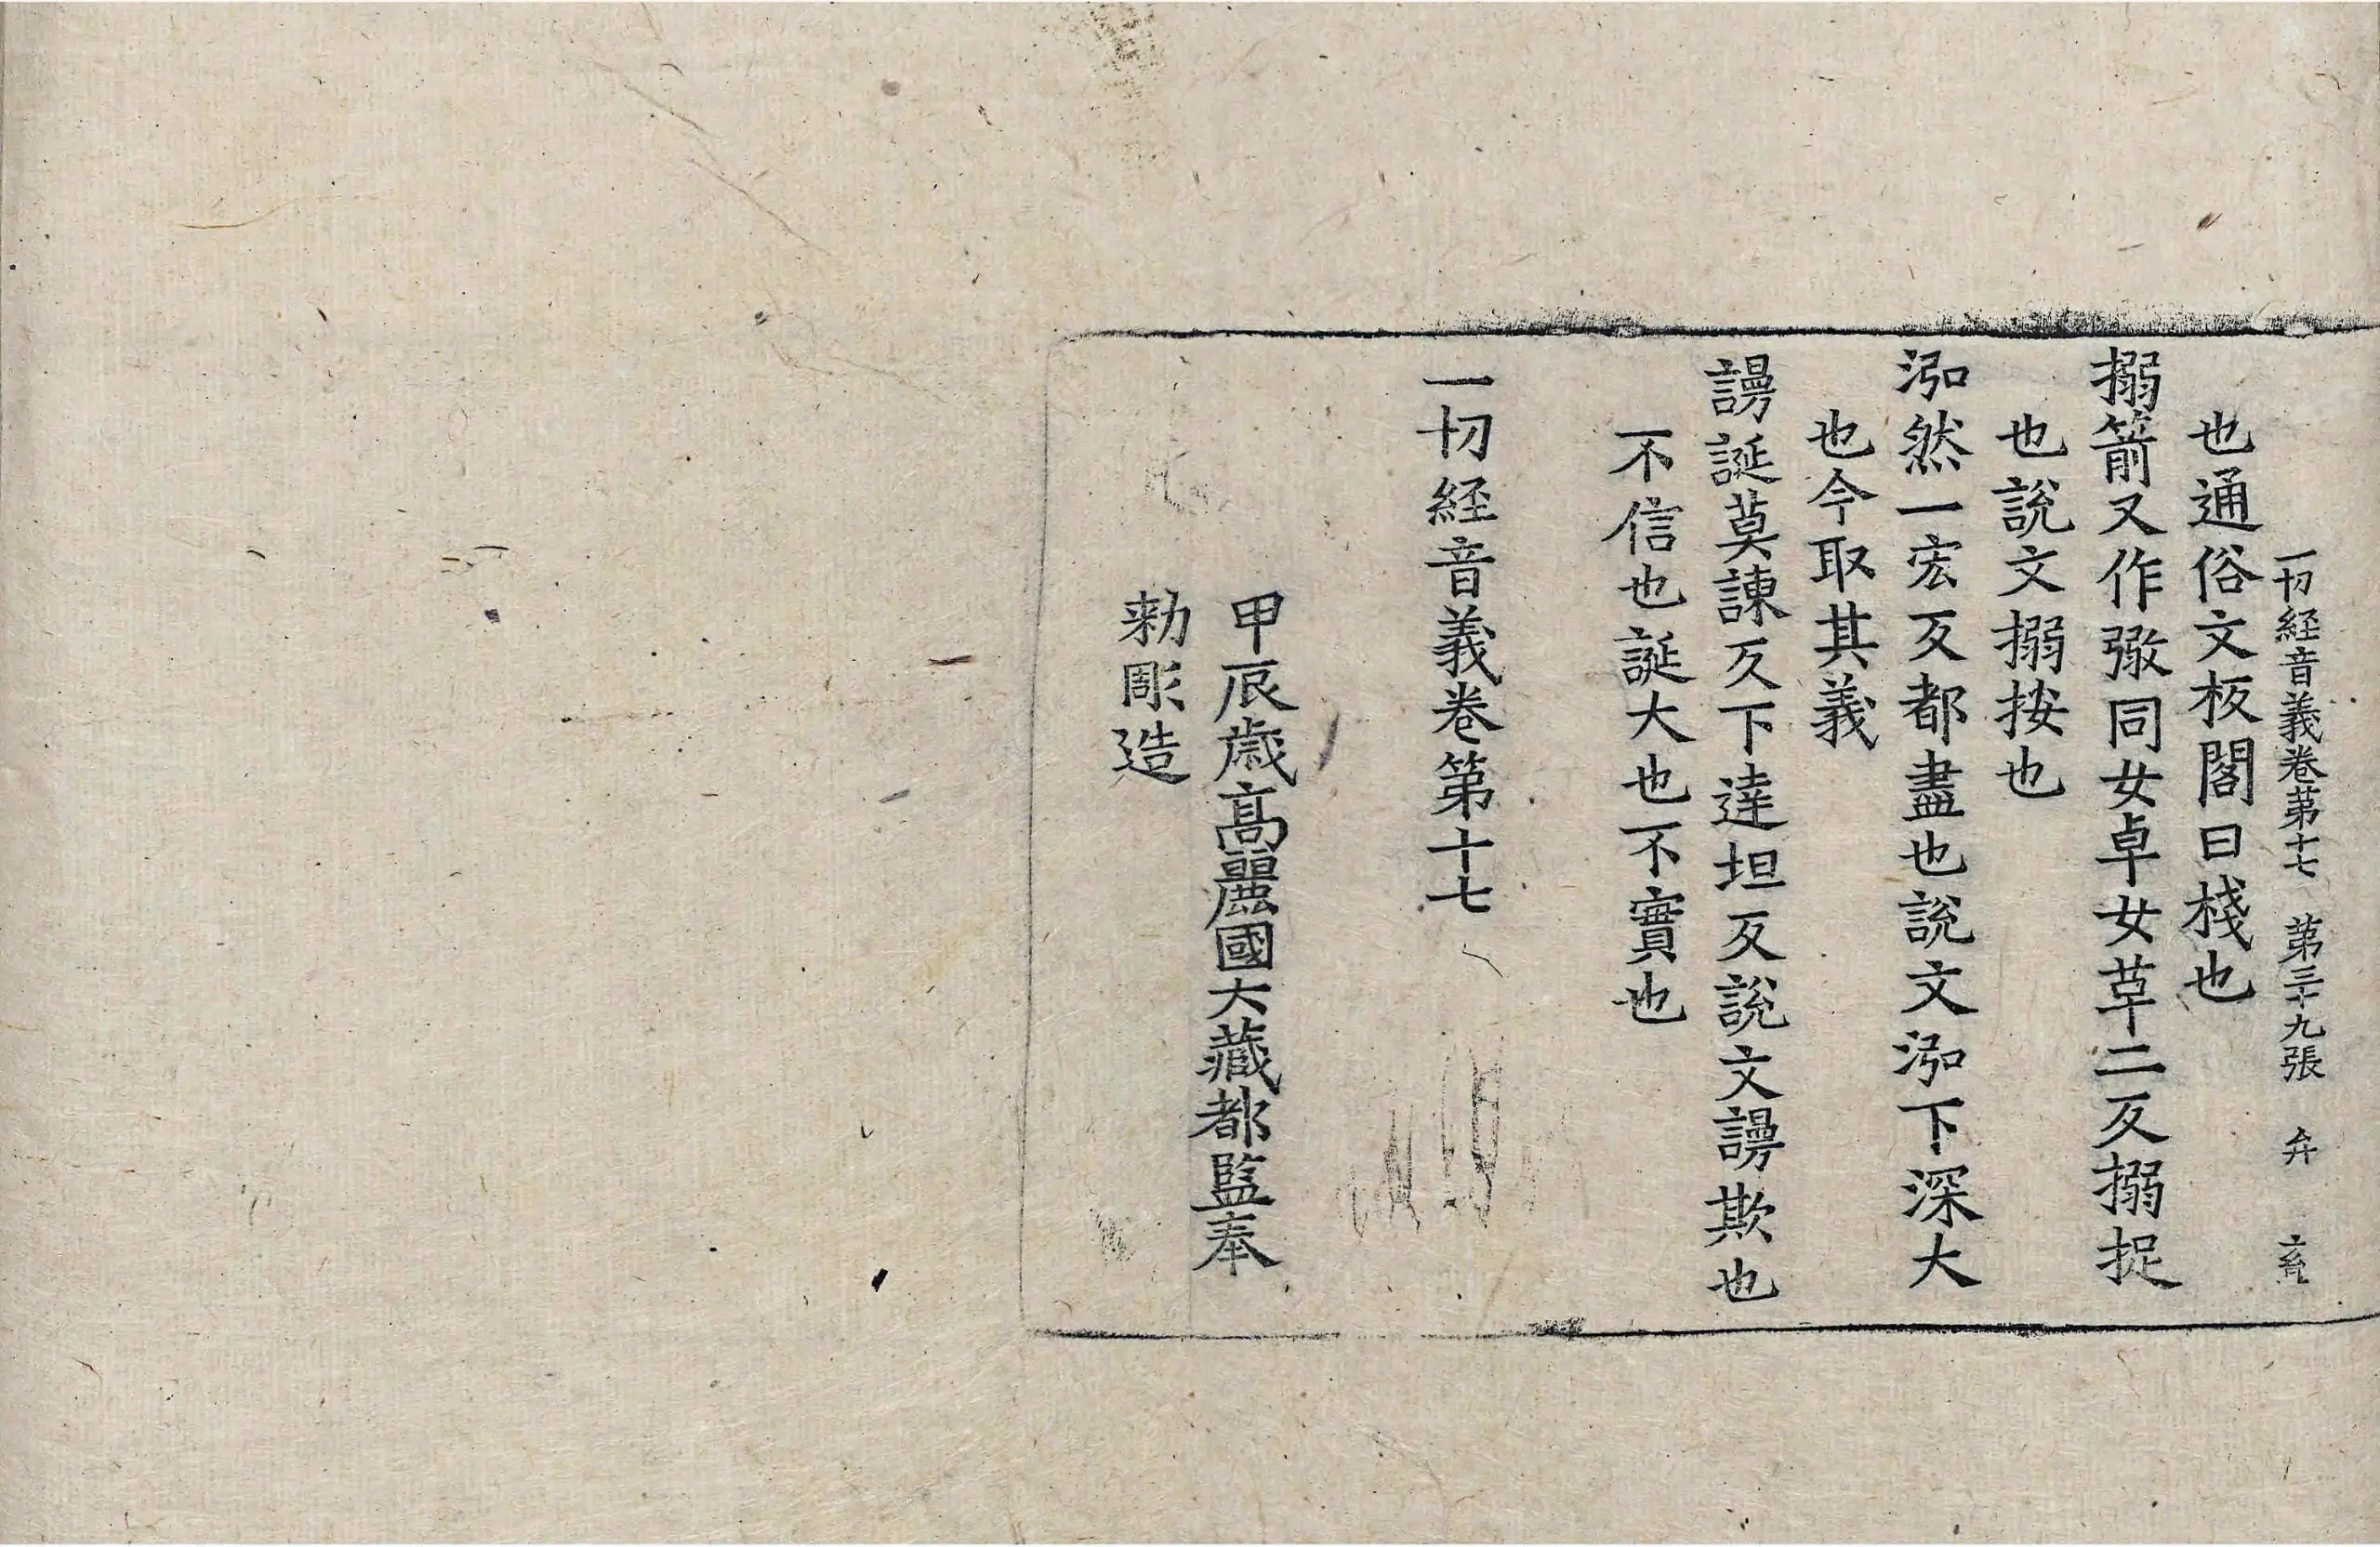 一切經音義卷第十七 第三十九張 弁
也通俗文板閣曰棧也
搦箭又作𢱧同女卓女革二反搦捉
也說文搦按也
泓然一宏反都盡也說文泓下深大
也今取其義
謾誕莫諫反下達坦反說文謾欺也
不信也誕大也不實也
一切經音義卷第十七
甲辰歲高麗國大藏都監奉
勑彫造